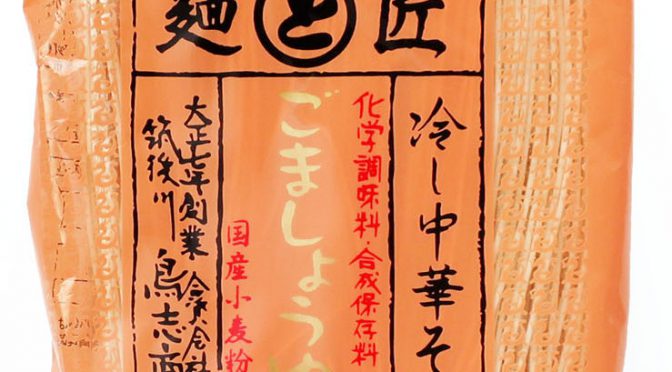 麺 と 匠
冷し中華そ
化学調味料・合成保存料
ごましょうゆ
国産小麦粉
大正七年創業 合資会社
筑後川 鳥志商